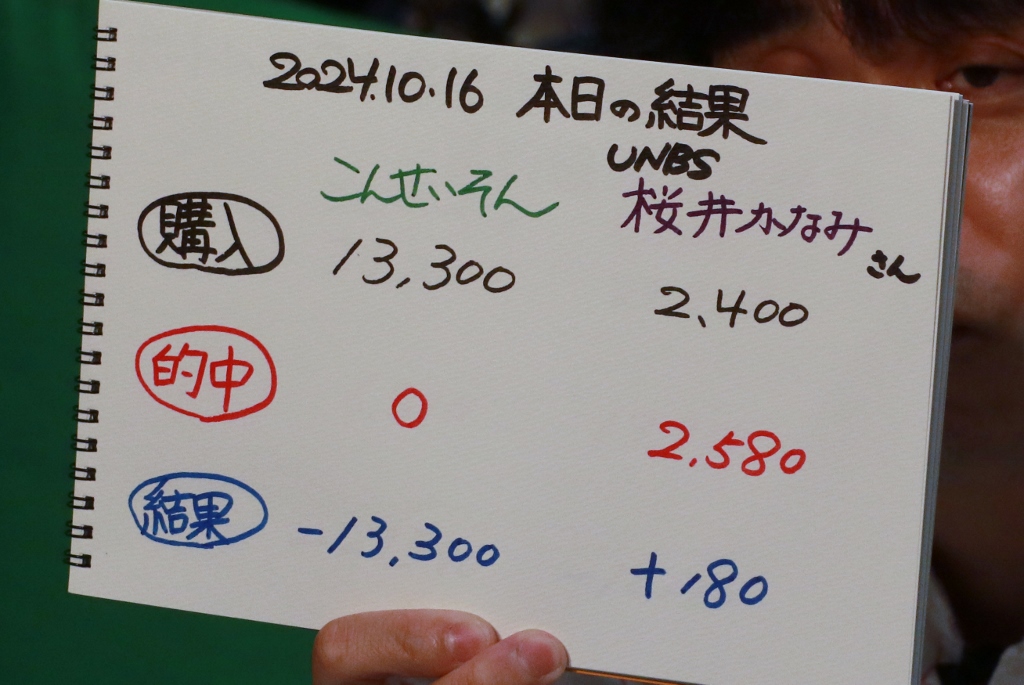 2024.10.16 本日の結果
UNBS
こんせいそん 桜井かなみさん
購入 13,300 2,400
的中 0 2,580
結果 -13,300 +180